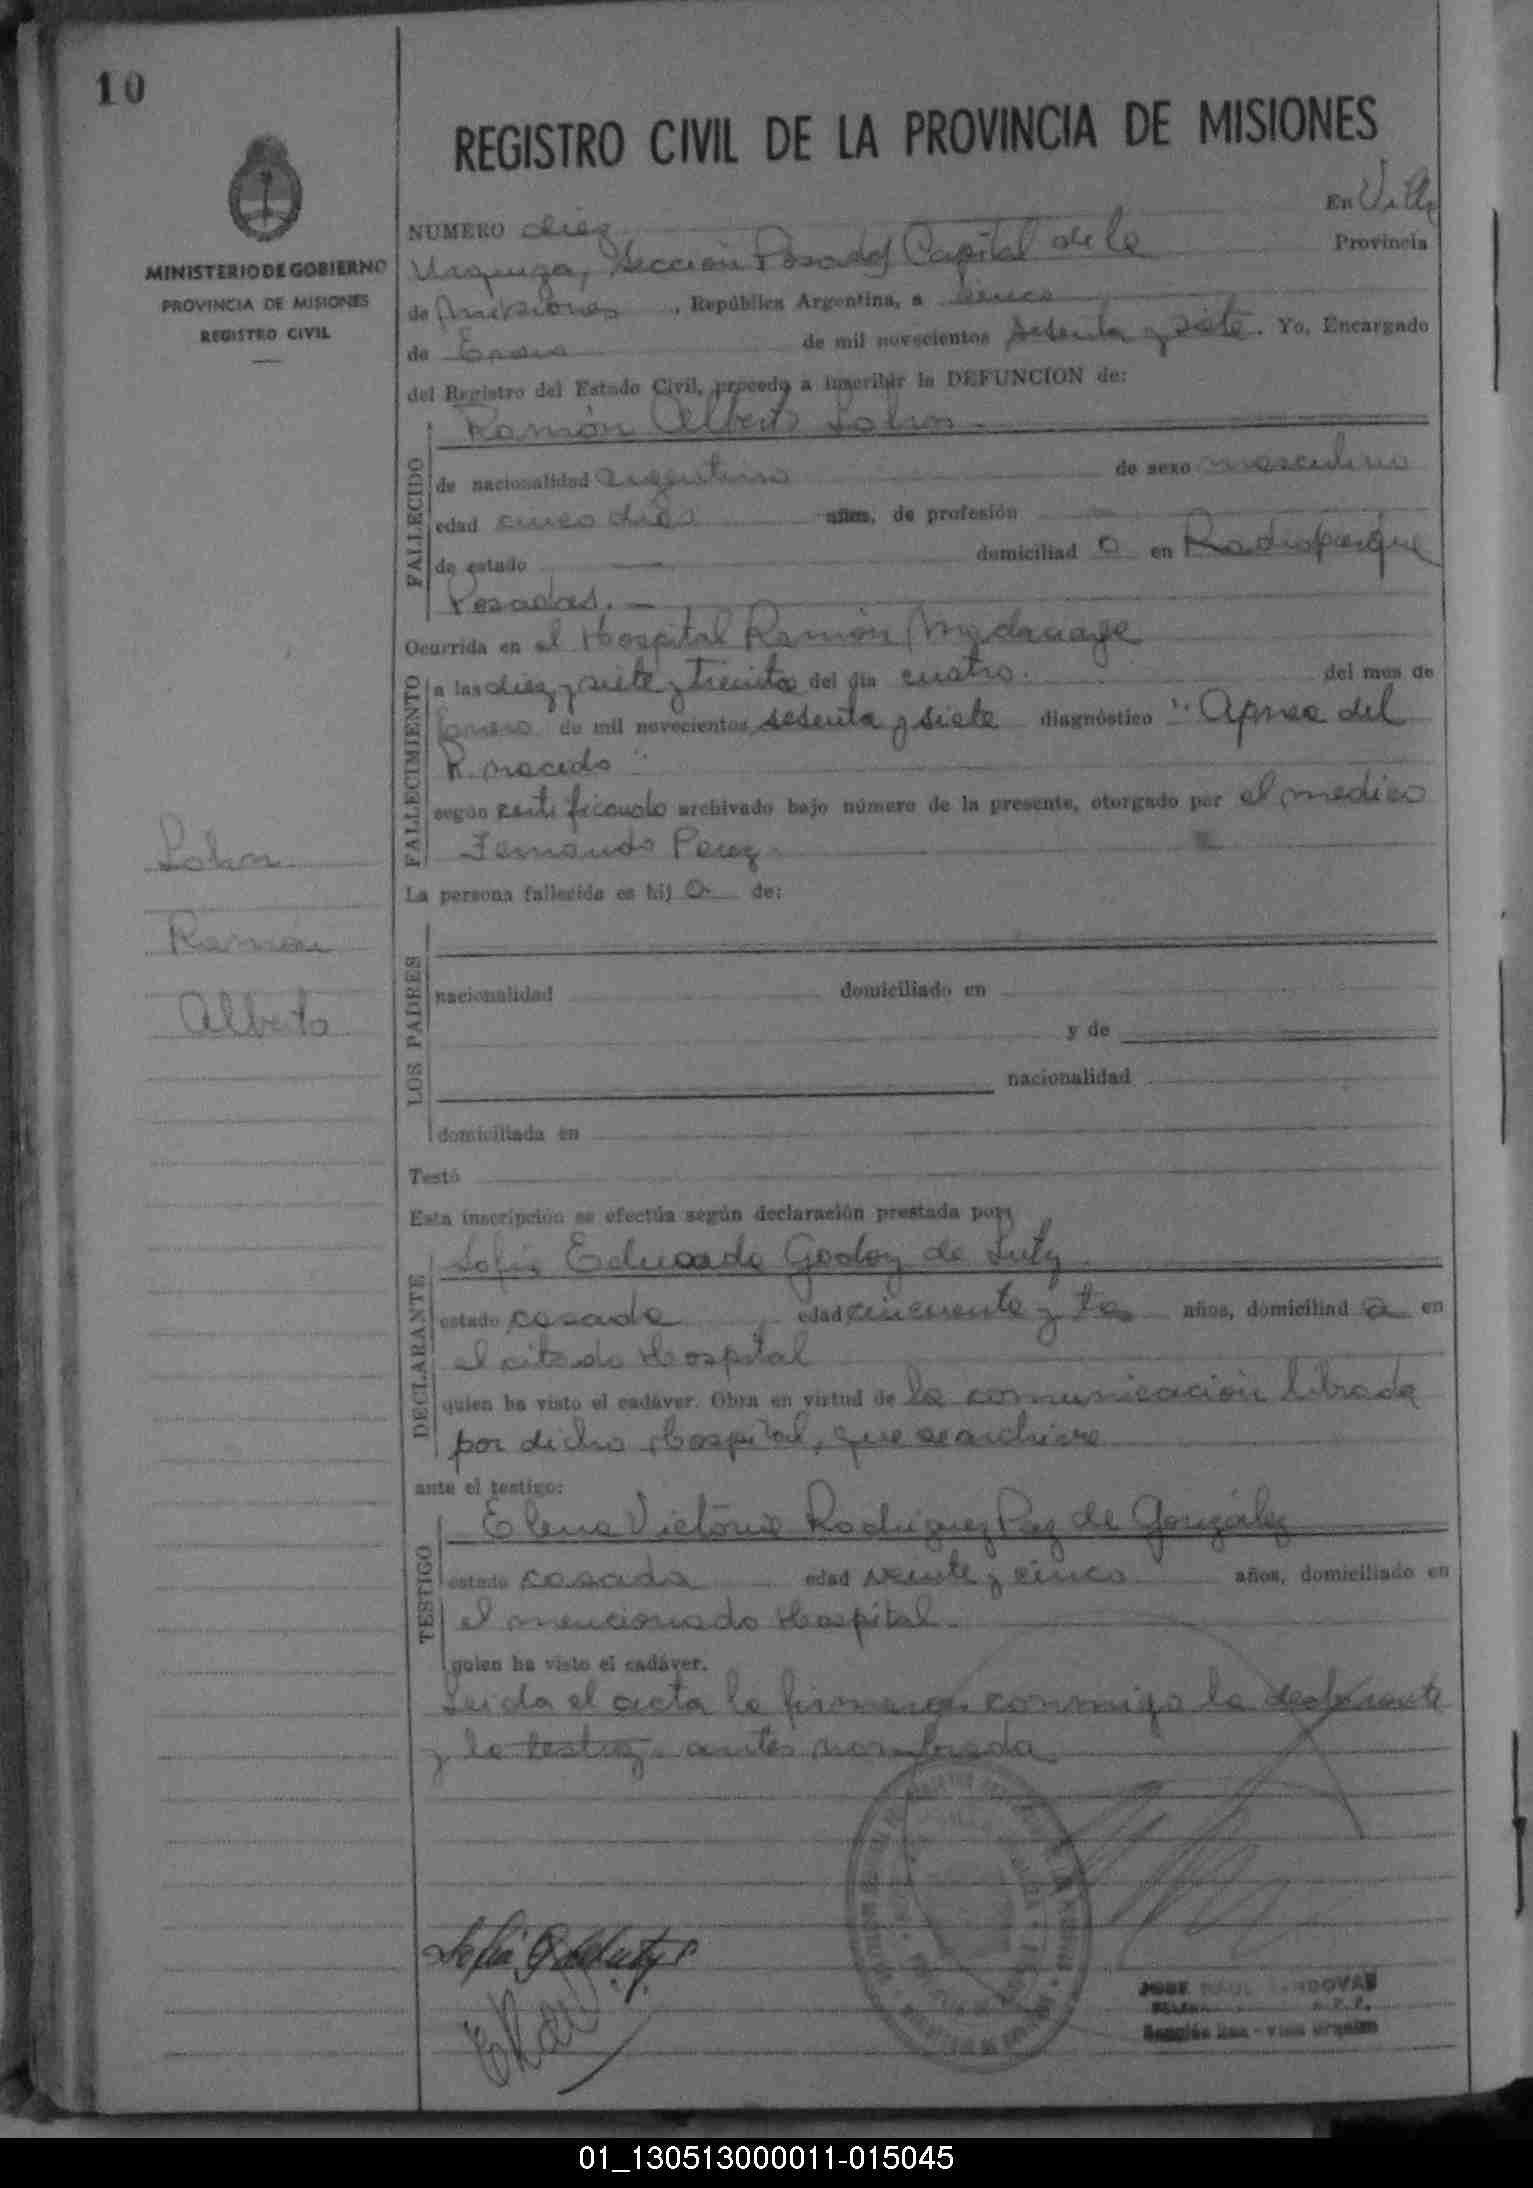 10
REGISTRO CIVIL DE LA PROVINCIA DE MISIONES
MINISTERIO DE GOBIERNO
PROVINCIA DE MISIONES
REGISTRO CIVIL
NUMERO diez En Villa
Urquiza, Sección Posadas Capital de la Provincia
de Misiones, República Argentina, a cinco
de Enero de mil novecientos sesenta y siete. Yo, Encargado
del Registro del Estado Civil, procedo a inscribir la DEFUNCION de:
Ramón Alberto
FALLECIDO
de nacionalidad argentina de sexo masculino
edad cinco dias años, de profesión
de estado domiciliad o en
Posadas.
Ocurrida en el Hospital Ramón Madariaga
FALLECIMIENTO
a las diez y siete y treinta del día cuatro. del mes de
enero de mil novecientos sesenta y siete diagnóstico "Apnea del
R. nacido"
según certificado archivado bajo número de la presente, otorgado por el medico
Fernando Perez
La persona fallecida es hij o de:
Ramón
Alberto
LOS PADRES
nacionalidad domiciliado en
y de
nacionalidad
domiciliada en
Testó
Esta inscripción se efectúa según declaración prestada por:
DECLARANTE
Sofía Eduarda Godoy de
estado casada edad cincuenta y tres años, domiciliad a en
el citado Hospital
quien ha visto el cadáver. Obra en virtud de la comunicación librada
por dicho Hospital, que se archiva
ante el testigo:
TESTIGO
Elena Victoria Rodriguez Paz de González
estado casada edad veinte y cinco años, domiciliado en
el mencionado Hospital.
quien ha visto el cadáver.
Leida el acta la firmaron conmigo la declarante
y la testigo antes nombrada
JOSE RAUL SANDOVAL
01_130513000011-015045